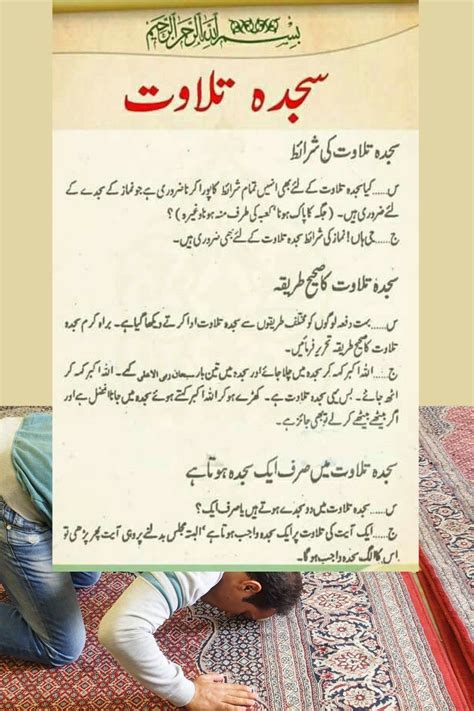 بسم اللہ الرحمن الرحیم
سجدہ تلاوت
سجدہ تلاوت کی شرائط
س.....کیا سجدہ تلاوت کے لئے بھی انہیں تمام شرائط کا پورا کرنا ضروری ہے جو نماز کے سجدے کے
لئے ضروری ہیں۔ (جگہ کا پاک ہونا' کعبہ کی طرف منہ ہونا وغیرہ)؟
ج.....جی ہاں! نماز کی شرائط سجدہ تلاوت کے لئے بھی ضروری ہیں۔
سجدہ تلاوت کا صحیح طریقہ
س.....بہت دفعہ لوگوں کو مختلف طریقوں سے سجدہ تلاوت ادا کرتے دیکھا گیا ہے۔ براہ کرم سجدہ
تلاوت کا صحیح طریقہ تحریر فرمائیں۔
ج.....اللہ اکبر کہہ کر سجدہ میں چلا جائے اور سجدہ میں تین بار سبحان ربی الاعلیٰ کہے۔ اللہ اکبر کہہ کر
اٹھ جائے۔ بس یہی سجدہ تلاوت ہے۔ کھڑے ہو کر اللہ اکبر کہتے ہوئے سجدہ میں جانا افضل ہے اور
اگر بیٹھے بیٹھے کر لے تو بھی جائز ہے۔
سجدہ تلاوت میں صرف ایک سجدہ ہوتا ہے
س.....سجدہ تلاوت میں دو سجدے ہوتے ہیں یا صرف ایک؟
ج.....ایک آیت کی تلاوت پر ایک سجدہ واجب ہوتا ہے' البتہ مجلس بدلنے پر وہی آیت پھر پڑھی تو
اس کا الگ سجدہ واجب ہو گا۔